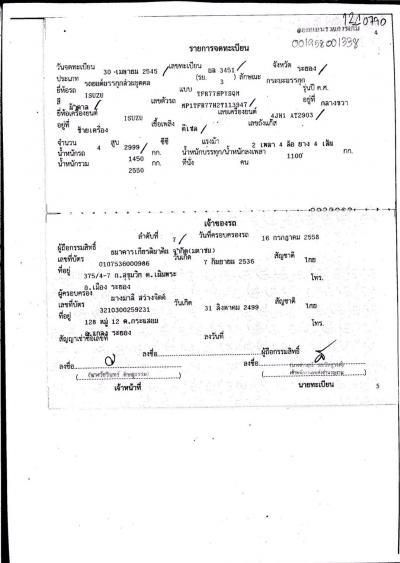 1220790
001958001338
4
รายการจดทะเบียน
วันจดทะเบียน 30 เมษายน 2545 เลขทะเบียน ยล 3451 จังหวัด ระยอง
ประเภท รถยนต์บรรทุกส่วนบุคคล (รย. 3 ) ลักษณะ กระบะบรรทุก
ยี่ห้อรถ ISUZU แบบ TFR77HPYSQM รุ่นปี ค.ศ.
สี เลขตัวรถ MP1TFR77H2T113947 อยู่ที่ กลางขวา
ยี่ห้อเครื่องยนต์ ISUZU เลขเครื่องยนต์ 4JH1 AT2903
อยู่ที่ ซ้ายเครื่อง เชื้อเพลิง ดีเซล เลขถังแก๊ส
จำนวน 4 สูบ 2999 ซีซี แรงม้า 2 เพลา 4 ล้อ ยาง 4 เส้น
น้ำหนักรถ 1450 กก. น้ำหนักบรรทุก/น้ำหนักลงเพลา 1100 กก.
น้ำหนักรวม 2550 กก. ที่นั่ง คน
เจ้าของรถ
ลำดับที่ 7 วันที่ครอบครองรถ 16 กรกฎาคม 2558
ผู้ถือกรรมสิทธิ์ ธนาคารเกียรตินาคิน จำกัด(มหาชน)
เลขที่บัตร 0107536000986 วันเกิด 7 กันยายน 2536 สัญชาติ ไทย
ที่อยู่ 375/4-7 ถ.สุขุมวิท ต.เนินพระ โทร.
อ.เมือง ระยอง
ผู้ครอบครอง นางมาลี สว่างจิตต์
เลขที่บัตร 3210300259231 วันเกิด 31 สิงหาคม 2499 สัญชาติ ไทย
ที่อยู่ 128 หมู่ 12 ต.กระแสบน โทร.
อ.แกลง ระยอง
สัญญาเช่าซื้อเลขที่ ลงวันที่
ลงชื่อ ผู้ถือกรรมสิทธิ์
ลงชื่อ ลงชื่อ
เจ้าหน้าที่ นายทะเบียน
5